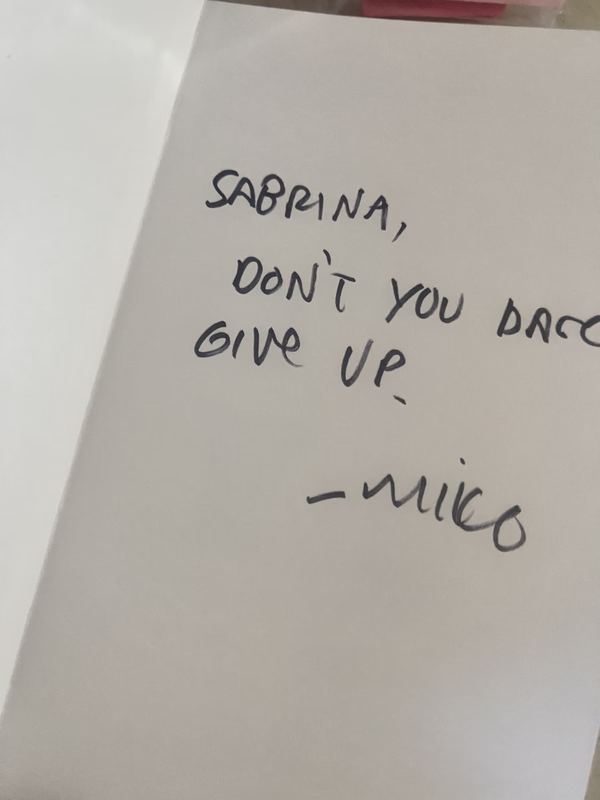 SABRINA,
DON'T YOU DARE
GIVE UP.
- MIKO